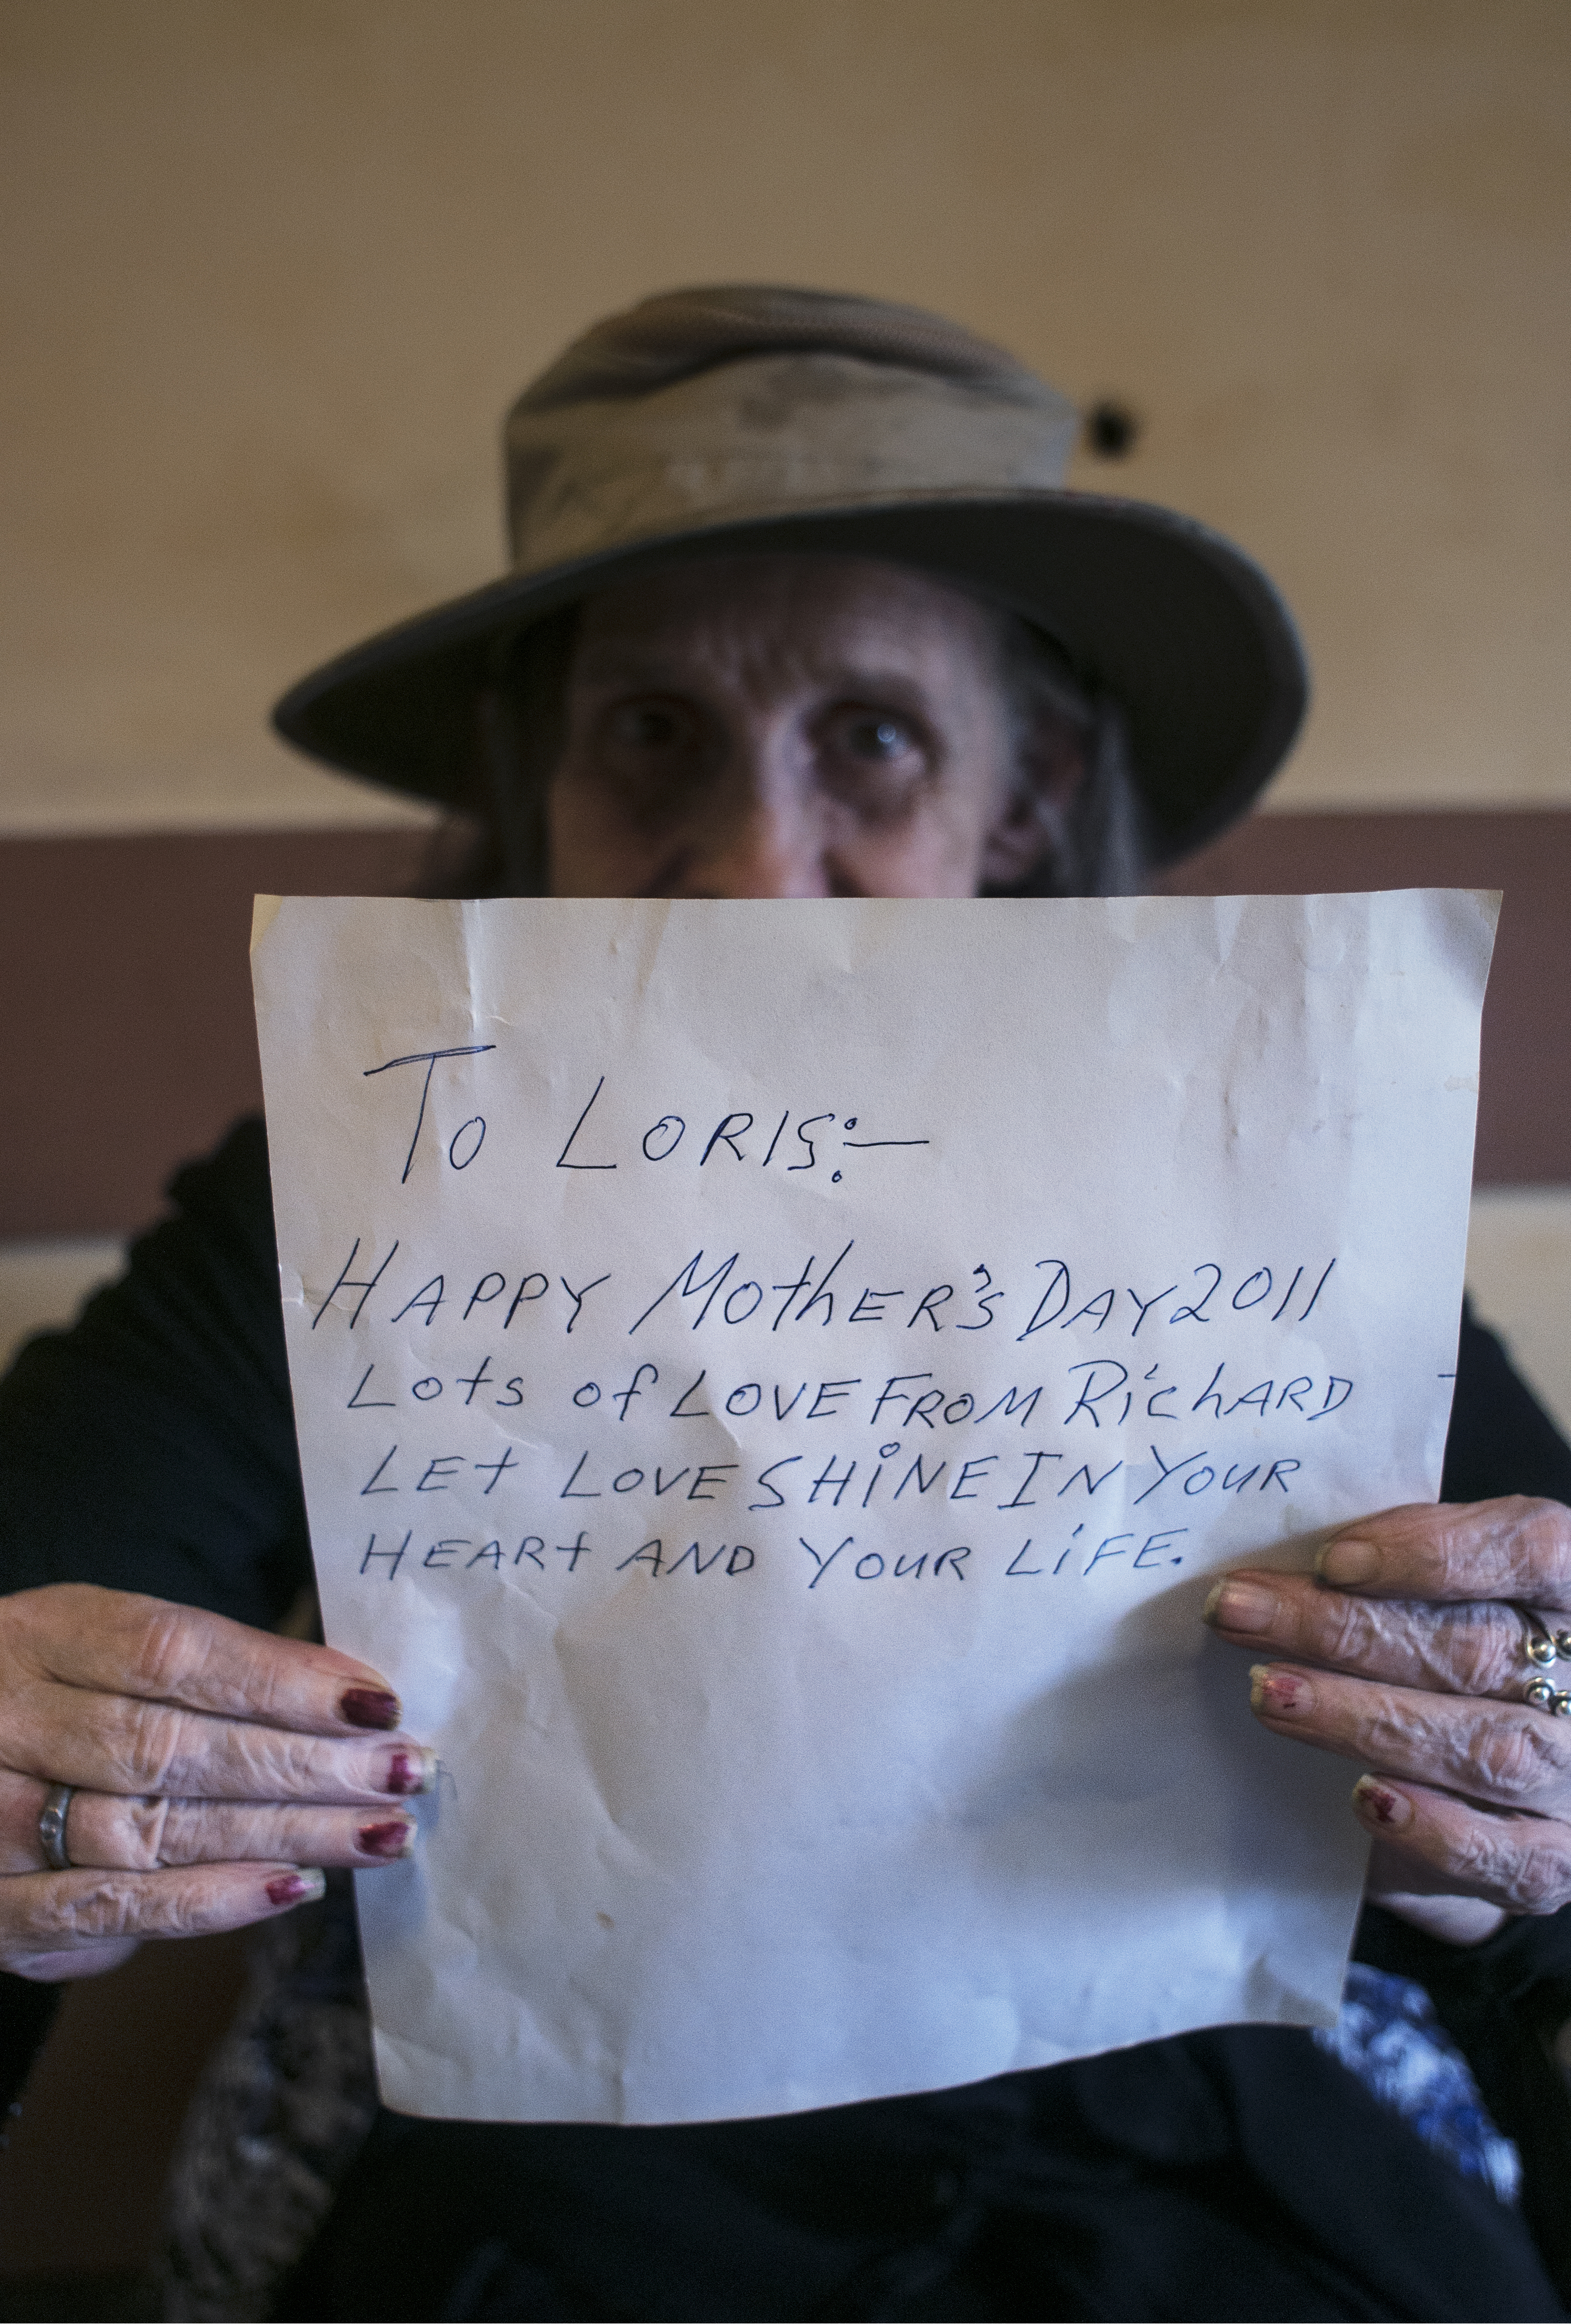 To LORIS:-
HAPPY MotHER'S DAY 2011
Lots of LOVE FROM RichARD
LEt LOVE SHiNE IN YOUR
HEARt AND YOUR LiFE.